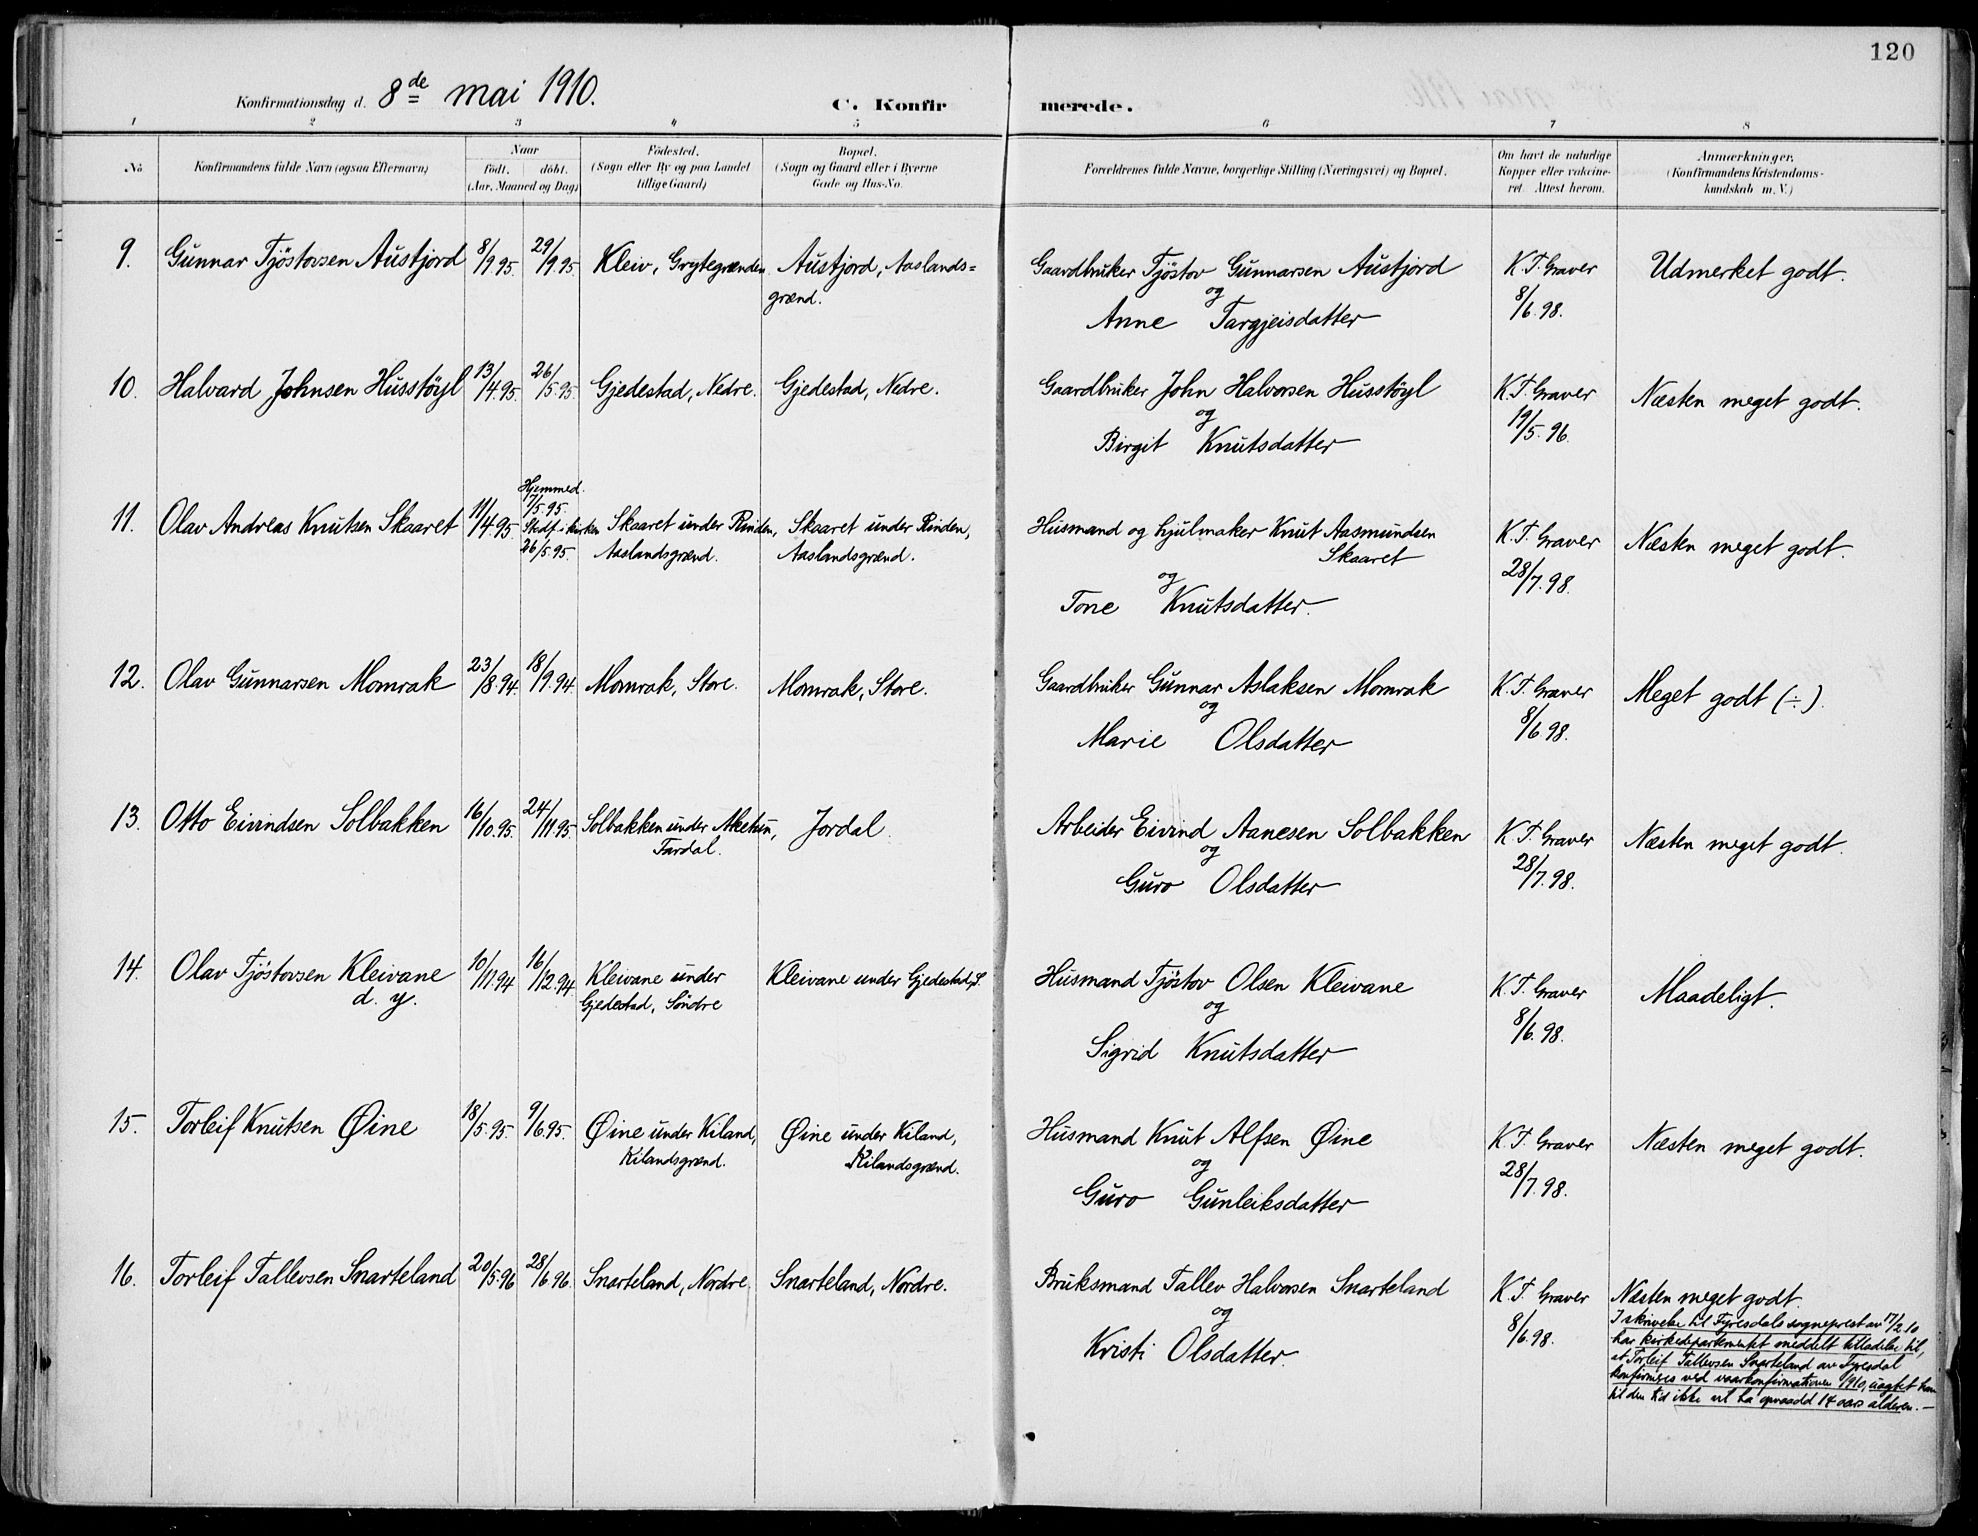 120
Konfirmationsdag d. 8de mai 1910.
C. Konfirmerede.
1 2 3 4 5 6 7 8
No
Konfirmandens fulde Navn (ogsaa Efternavn)
Naar
født. døbt.
(Aar, Maaned og Dag)
Födested.
(Sogn eller By og paa Landet
tillige Gaard)
Bopæl.
(Sogn og Gaard eller i Byerne
Gade og Hus-No.
Forældrenes fulde Navne, borgerlige Stilling (Næringsvei) og Bopæl.
Om havt de naturlige
Kopper eller vakcine-
ret. Attest herom.
Anmærkninger.
(Konfirmandens Kristendoms-
kundskab m. V.)
9. Gunnar Tjöstovsen Austjord 8/9.95. 29/9.95 Kleiv, Grytegrænden Austjord, Aaslands=
grænd.
Gaardbruker Tjöstov Gunnarsen Austjord
og
Anne Targjeisdatter
K. T. Graver
8/6.98.
Udmerket godt.
10. Halvard Johnsen Husstöyl 13/4.95. 26/5.95. Gjedestad, Nedre. Gjedestad, Nedre.
Gaardbruker John Halvorsen Husstöyl
og
Birgit Knutsdatter
K. T. Graver
19/5.96.
Næsten meget godt.
11. Olav Andreas Knutsen Skaaret 11/4.95.
Hjemmed.
7/5.95.
Stadf. i kirken
26/5.95.
Skaaret under Rinden,
Aaslandsgrænd.
Skaaret under Rinden,
Aaslandsgrænd.
Husmand og hjulmaker Knut Aasmundsen
Skaaret
og
Tone Knutsdatter.
K. T. Graver
28/7.98.
Næsten meget godt.
12. Olav Gunnarsen Momrak 23/8.94. 18/9.94. Momrak, Store. Momrak, Store.
Gaardbruker Gunnar Aslaksen Momrak
og
Marie Olsdatter
K. T. Graver
8/6.98.
Meget godt (÷).
13. Otto Eivindsen Solbakken 16/10.95. 24/11.95. Solbakken under Aketun, Jordal.
Tardal.
Arbeider Eivind Aanesen Solbakken
og
Guro Olsdatter
K. T. Graver
28/7.98.
Næsten meget godt.
14. Olav Tjöstovsen Kleivane
d. y.
10/11.94 16/12.94.
Kleivane under
Gjedestad, Söndre
Kleivane under Gjedestad, S.
Husmand Tjöstov Olsen Kleivane
og
Sigrid Knutsdatter
K. T. Graver
8/6.98.
Maadeligt.
15. Torleif Knutsen Øine 18/5.95. 9/6.95. Øine under Kiland,
Kilandsgrænd.
Øine under Kiland,
Kilandsgrænd.
Husmand Knut Alfsen Øine
og
Guro Gunleiksdatter
K. T. Graver
28/7.98.
Næsten meget godt.
16. Torleif Tallevsen Snarteland 20/5.96 28/6.96. Snarteland, Nordre. Snarteland, Nordre.
Bruksmand Tallev Halvorsen Snarteland
og
Kristi Olsdatter.
K. T. Graver
8/6.98.
Næsten meget godt.
I skrivelse til Fyresdals sogneprest av 17/2 10
har kirkedepartementet meddelt tilladelse til,
at Torleif Tallevsen Snarteland av Fyresdal
konfirmeres ved vaarkonfirmationen 1910, uagtet han
til den tid ikke vil ha opnaadd 14 aars alderen.—